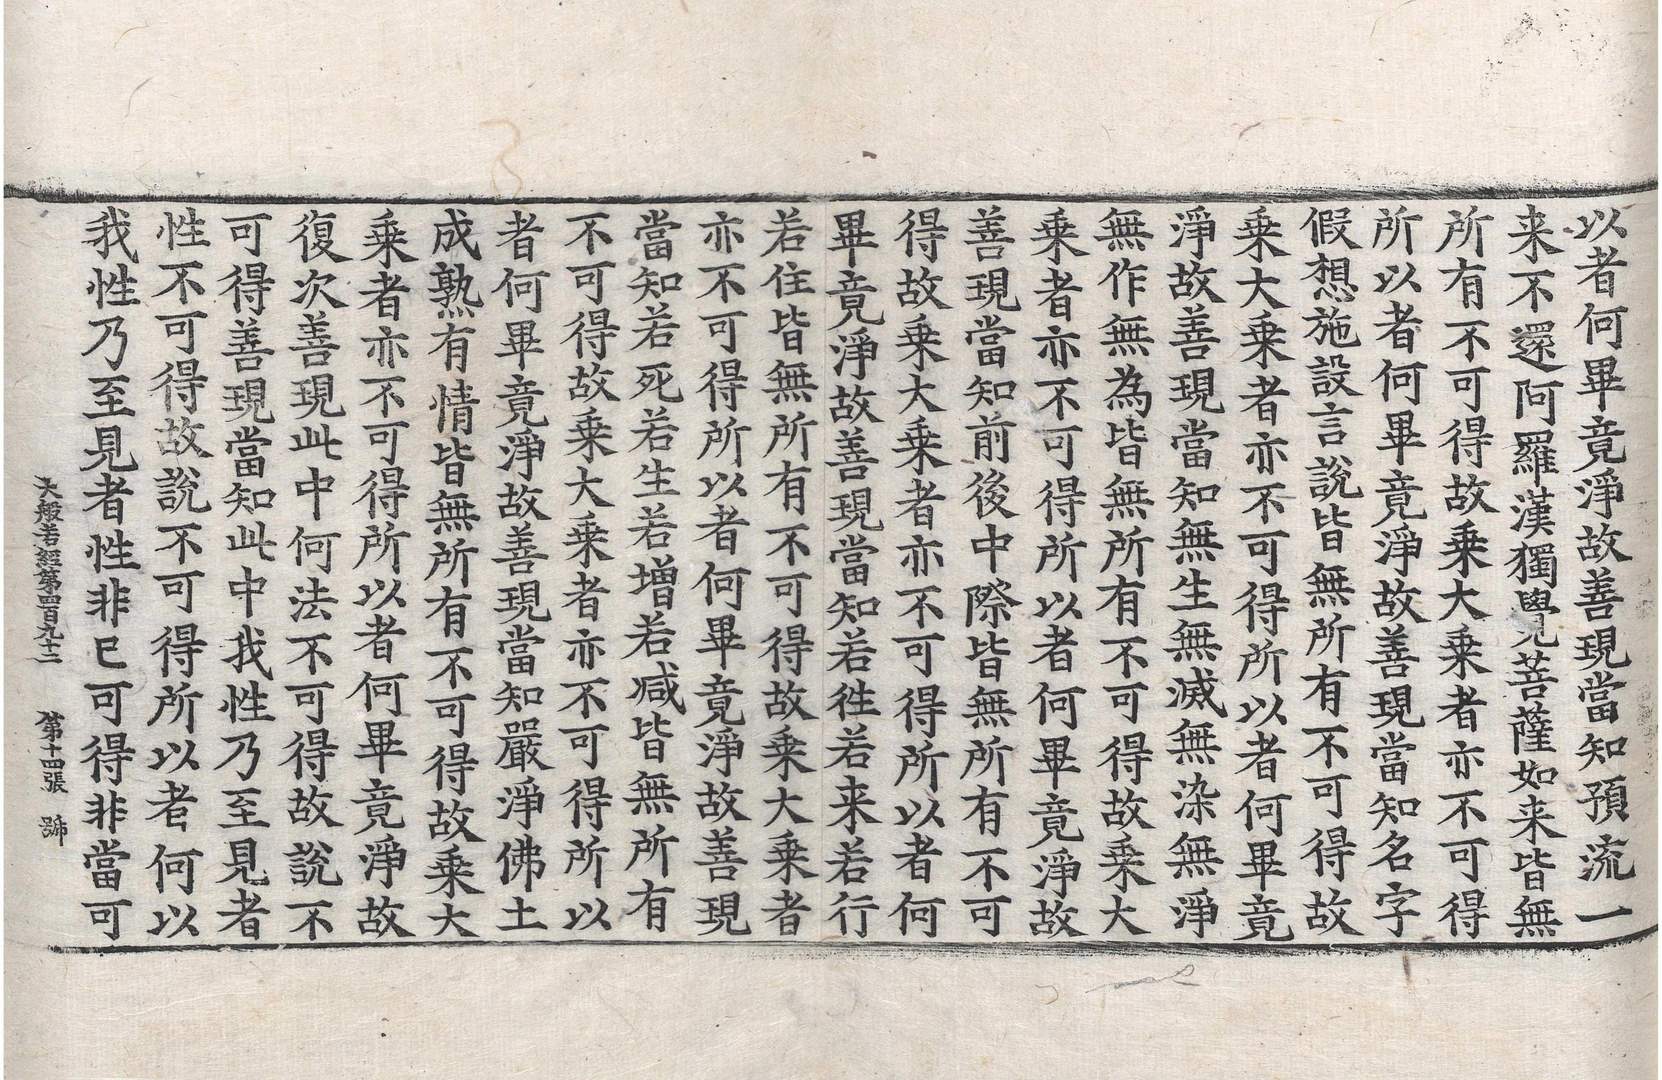 以者何畢竟淨故善現當知預流一
来不還阿羅漢獨覺菩薩如来皆無
所有不可得故乗大乗者亦不可得
所以者何畢竟淨故善現當知名字
假想施設言說皆無所有不可得故
乗大乗者亦不可得所以者何畢竟
淨故善現當知無生無滅無染無淨
無作無為皆無所有不可得故乗大
乗者亦不可得所以者何畢竟淨故
善現當知前後中際皆無所有不可
得故乗大乗者亦不可得所以者何
畢竟淨故善現當知若徃若来若行
若住皆無所有不可得故乗大乗者
亦不可得所以者何畢竟淨故善現
當知若死若生若增若减皆無所有
不可得故乗大乗者亦不可得所以
者何畢竟淨故善現當知嚴淨佛土
成熟有情皆無所有不可得故乗大
乗者亦不可得所以者何畢竟淨故
復次善現此中何法不可得故說不
可得善現當知此中我性乃至見者
性不可得故說不可得所以者何以
我性乃至見者性非已可得非當可
大般若經第四百九十二 第十四張 號